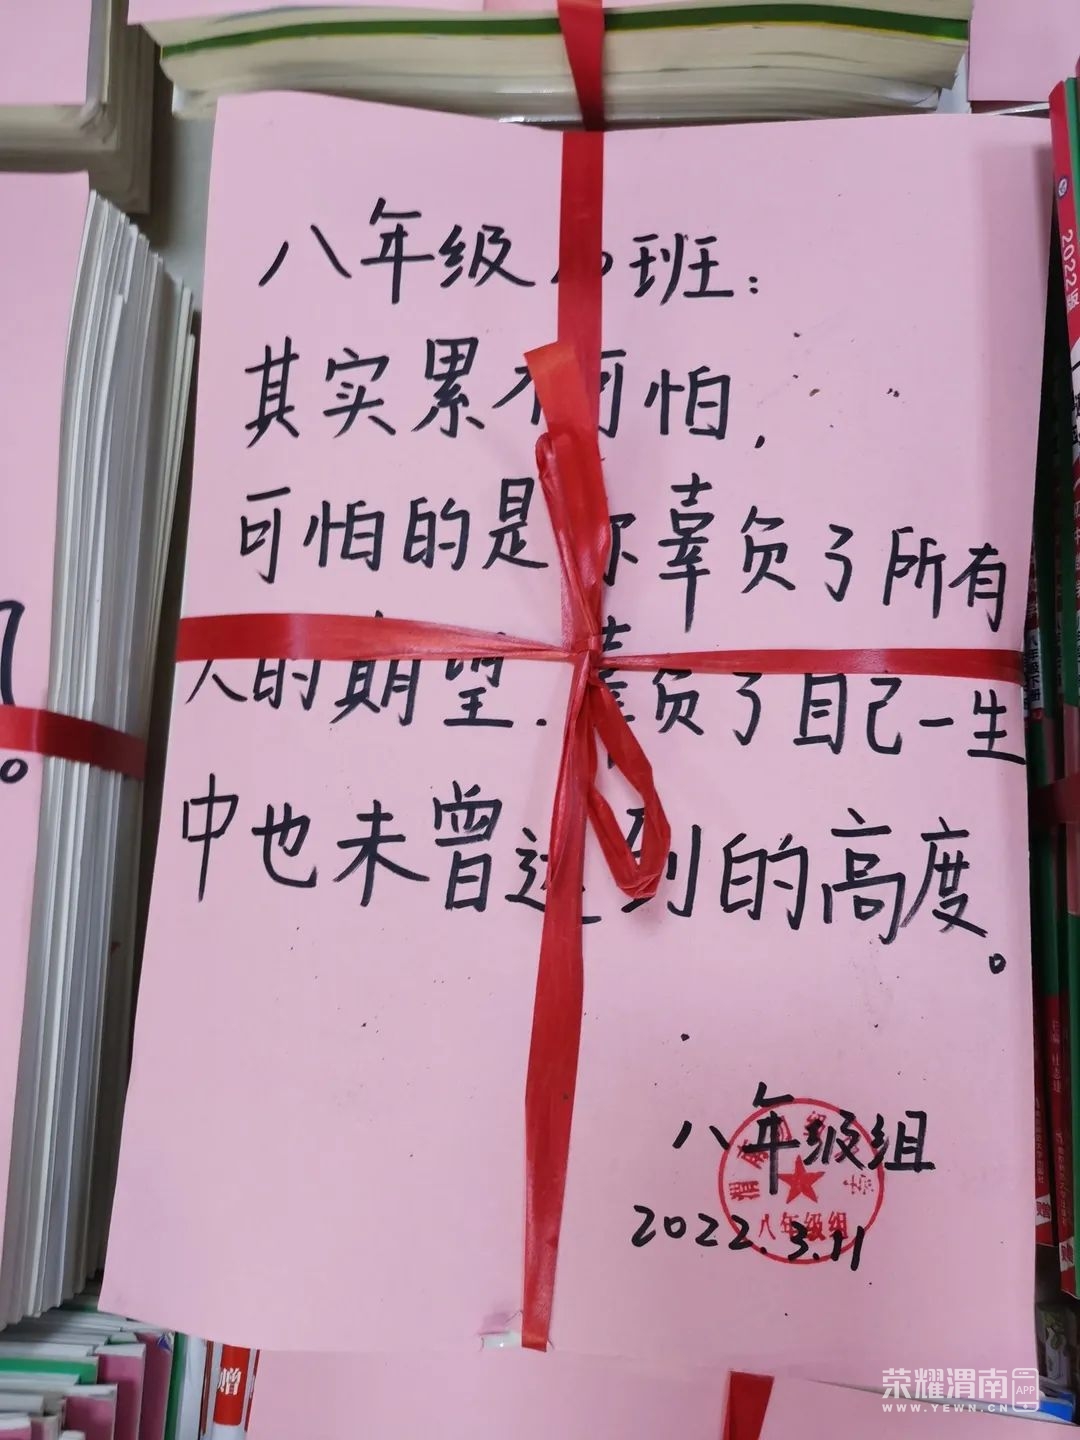 八年级 班：
其实累不可怕，
可怕的是你辜负了所有
人的期望.辜负了自己一生
中也未曾达到的高度。
八年级组
2022.3.11
八年级组
2022版
赠
荣耀渭南APP
WWW.YEWN.CN